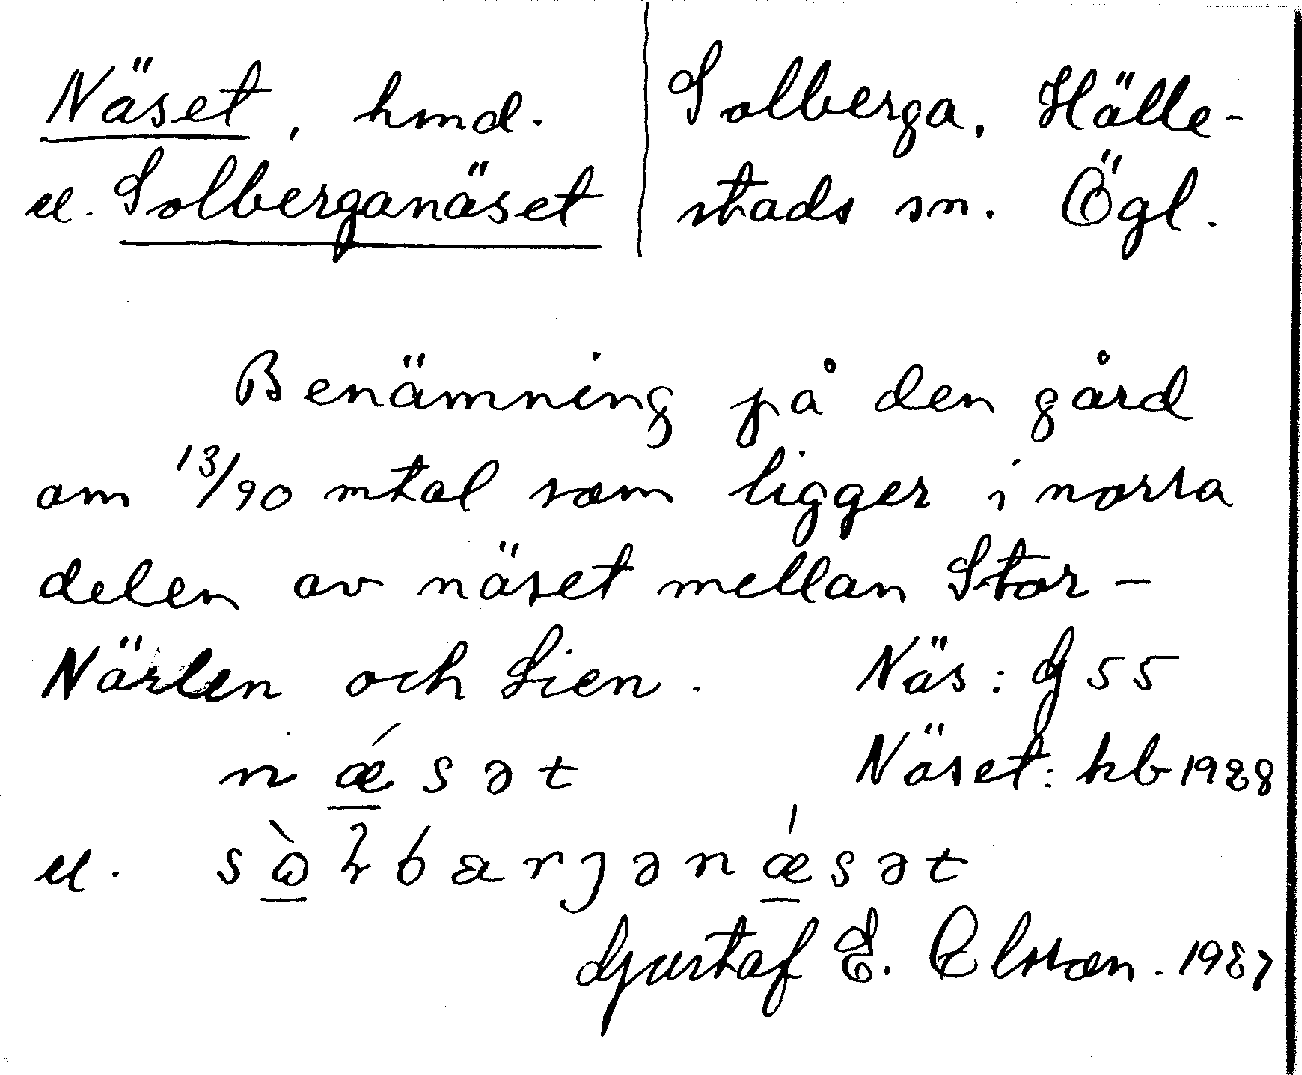 Näset, hmd.
el. Solberganäset
Solberga, Hälle-
stads sn. Ögl.
Benämning på den gård
om 13/90 mtal som ligger i norra
delen av näset mellan Stor-
Närlen och Lien.
Näs: G 55
nǽ̲sət
Näset: hb 1928
el.
Gustaf E. Elsson. 1927